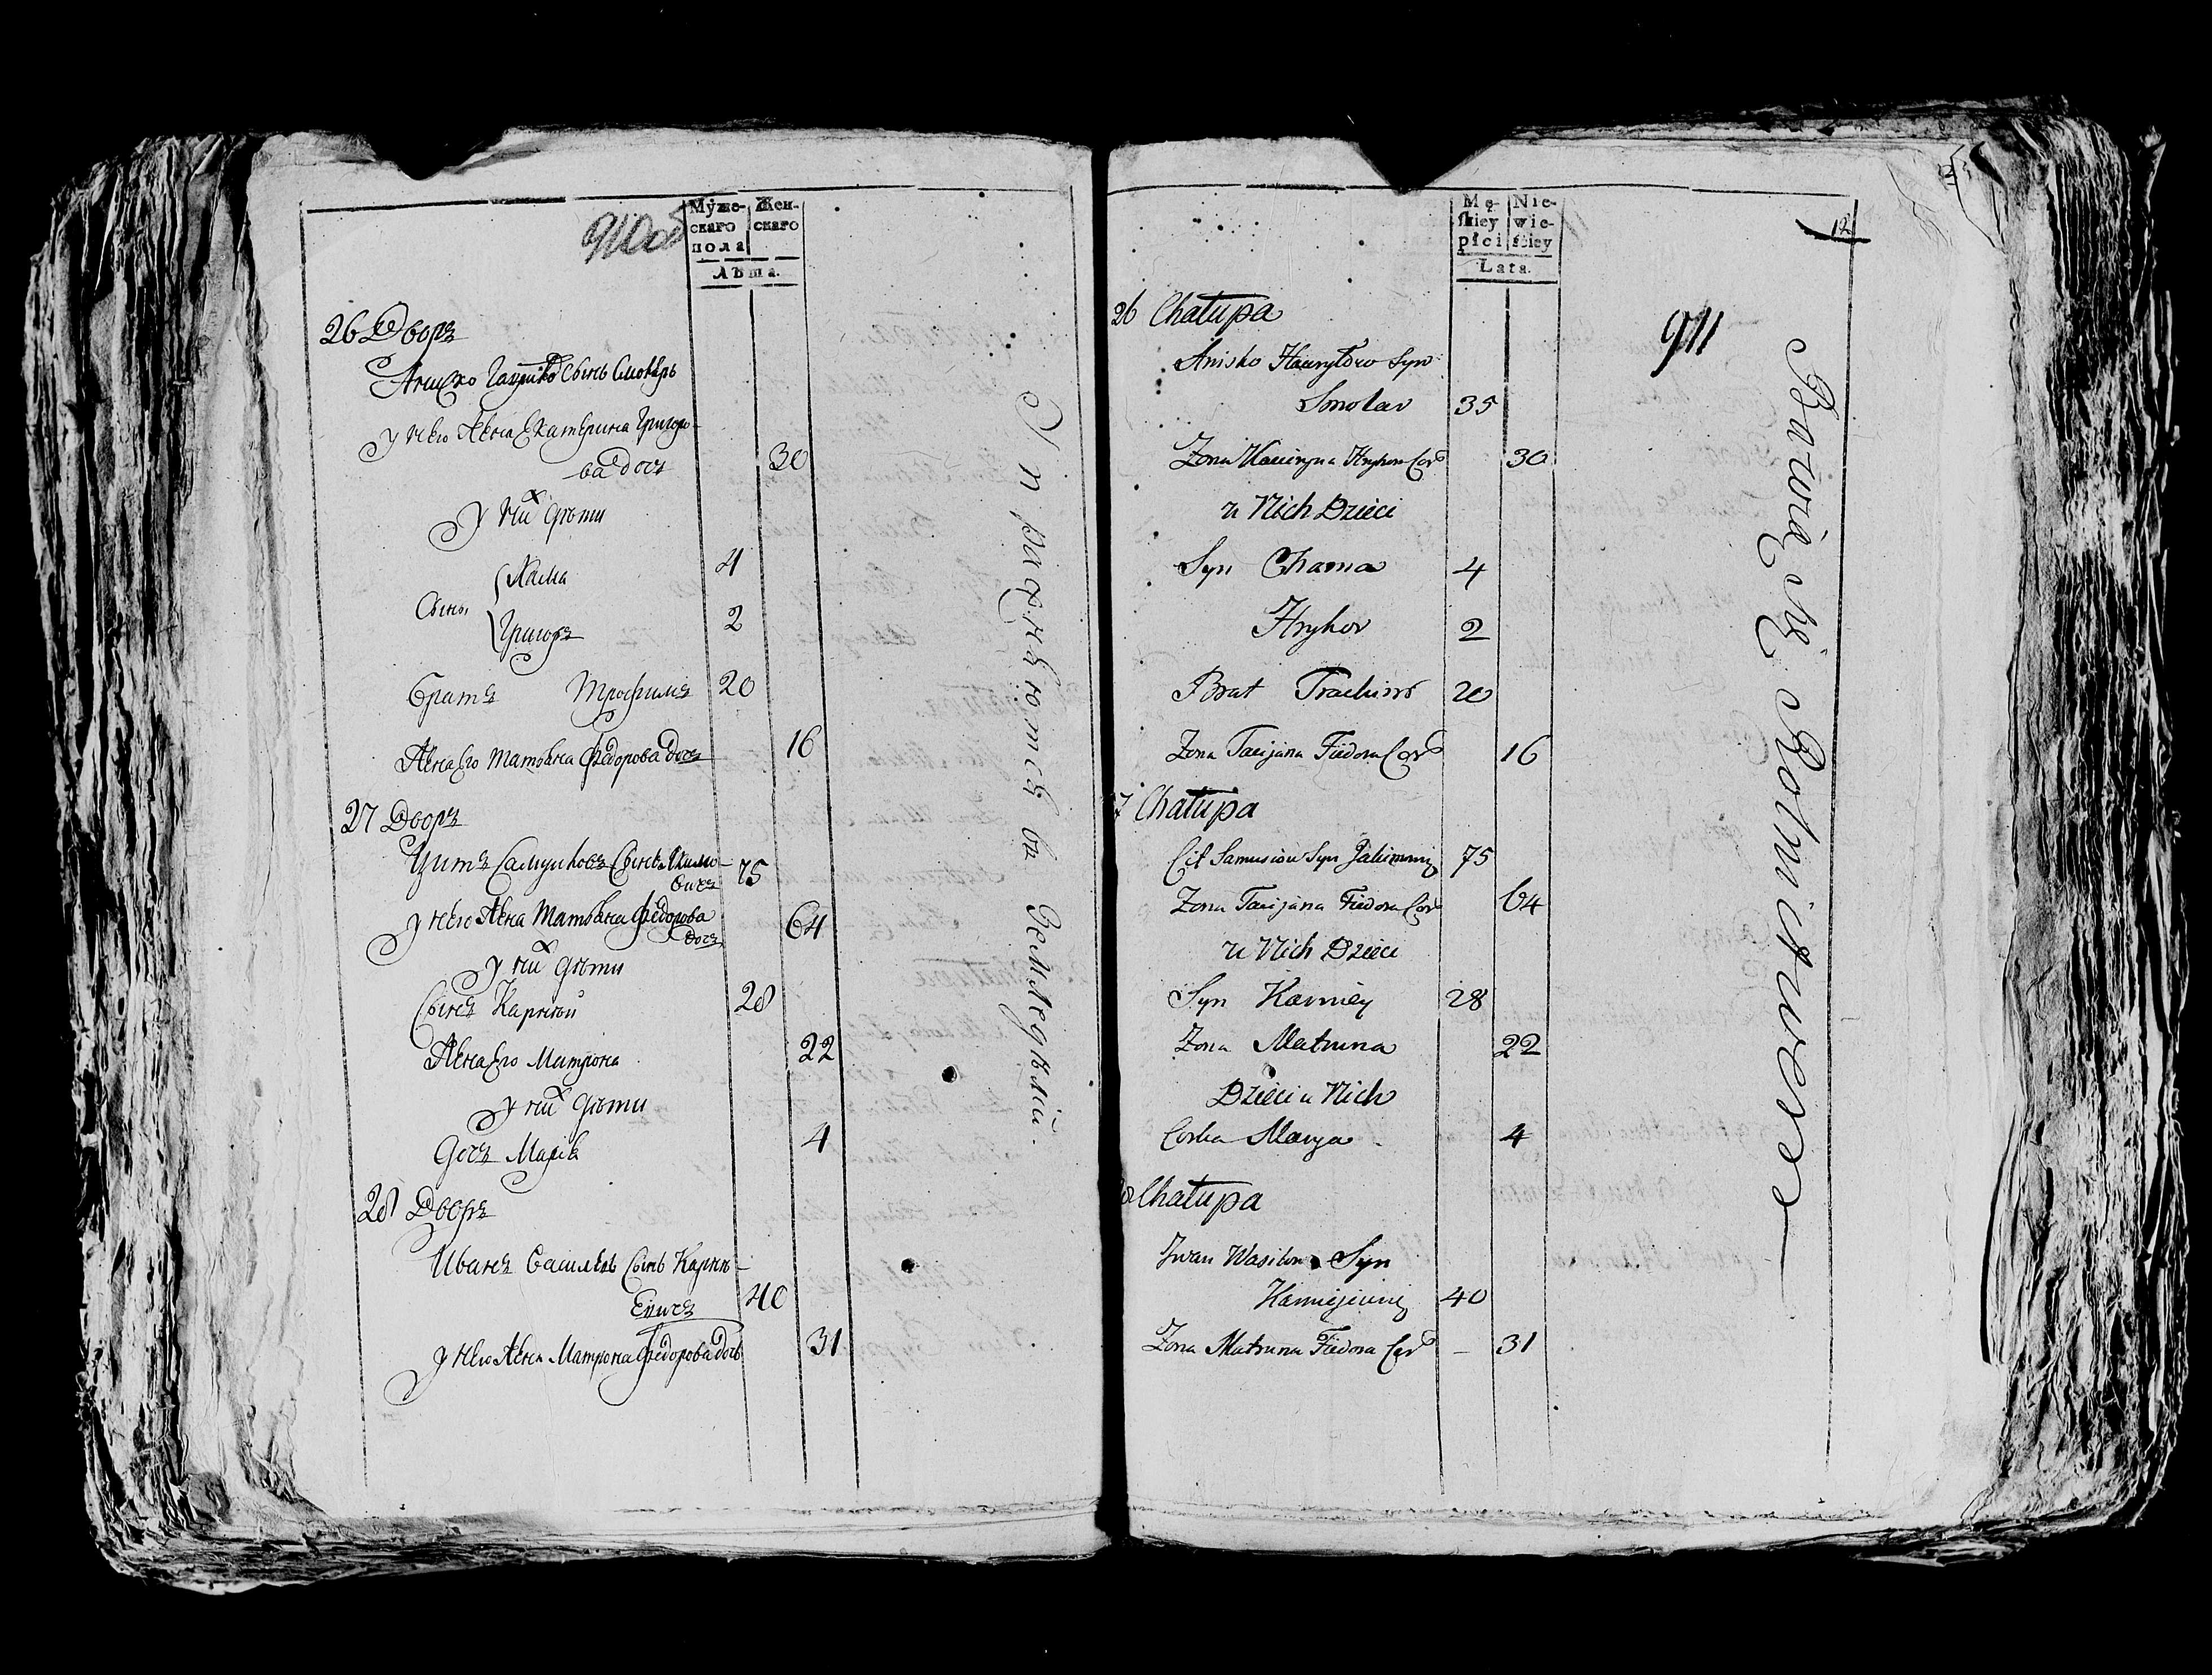 910об
Муже-
скаго
пола
Жен-
скаго
Лѣта.
26 Дворъ
Аниско Гаврилов Сынъ Смоляръ
у него Жена Екатерина Григоро-
ва Дочь 30
у них дѣти
Сыны Хама 4
Григоръ 2
Братъ Трофимъ 20
Жена Его Татьяна Федорова Дочь 16
27 Дворъ
Цитъ Самусковъ Сынъ Якимо-
вичъ 75
у него Жена Татьяна Федорова
Дочь 64
у них дѣти
Сынъ Карнѣй 28
Жена Его Матрона 22
у них дѣти
Дочь Марія 4
28 Дворъ
Иванъ Васильевъ Сынъ Карнѣ-
Евичъ 40
у него Жена Матрона Федорова дочь 31
Упражняются въ Земледѣліи.
12
911
Mę-
skiey
płci
Nie-
wie-
ściey
Lata.
26 Chałupa
Anisko Hawryłow Syn
Smolar 35
Zona Kacieryna Hryhora Cor 30
u Nich Dzieci
Syn Chama 4
Hryhor 2
Brat Trachim 20
Zona Tacijana Fiedora Cor 16
7 Chałupa
Cit Samusiow Syn Jakimowicz 75
Zona Tacijana Fiedora Cor 64
u Nich Dzieci
Syn Karniey 28
Zona Matruna 22
Dzieci u Nich
Corka Marya 4
28 Chałupa
Jwan Wasilow Syn
Karniejewicz 40
Zona Matruna Fiedora Cor – 31
Bawią się Rolnictwem